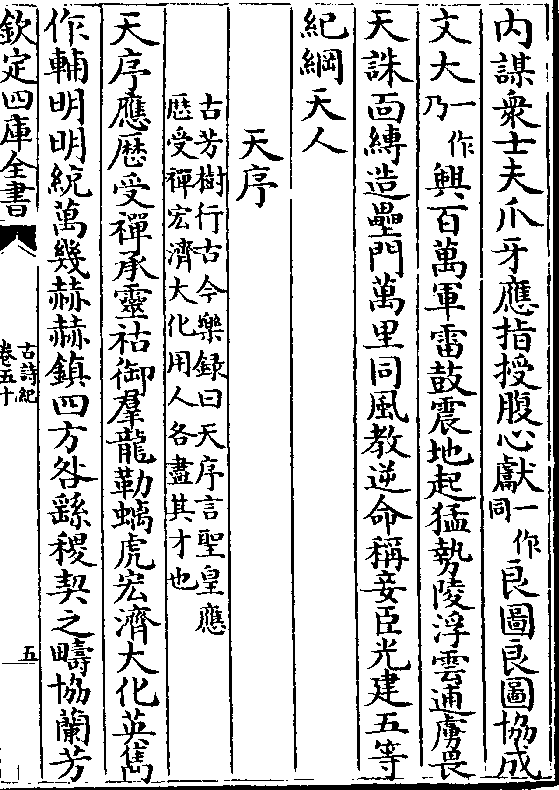 内謀衆士夫爪牙應指授腹心獻一作同良圖良圖協成
文大一作乃興百萬軍雷鼓震地起猛勢陵浮雲逋虜畏
天誅面縛造壘門萬里同風教逆命稱妾臣光建五等
紀綱天人
天序
古芳樹行古今樂録曰天序言聖皇應
厯受禪宏濟大化用人各盡其才也
天序應厯受禪承靈祜御羣龍勒螭虎宏濟大化英雋
作輔明明統萬幾赫赫鎮四方咎繇稷契之疇協蘭芳
欽定四庫全書
古詩紀
卷五十
五